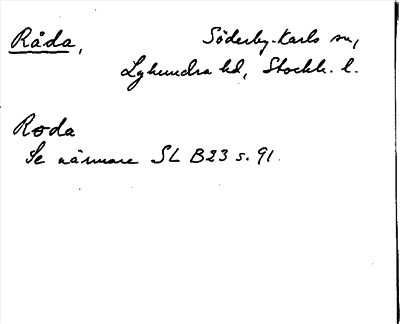 Råda, Söderby-Karls sn,
Lyhundra hd, Stockh. l.
Roda
Se närmare SL B23 s. 91.